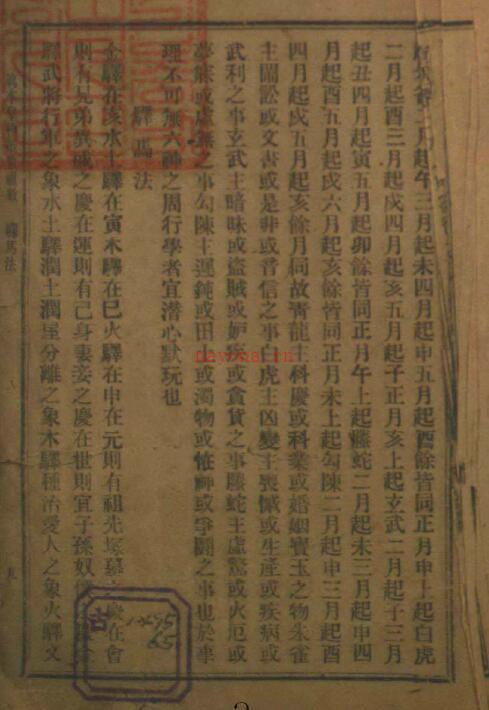 二月起午三月起未四月起申五月起酉餘皆同正月申上起白虎
二月起酉三月起戌四月起亥五月起子正月亥上起玄武二月起子三月
起丑四月起寅五月起卯餘皆同正月午上起螣蛇二月起未三月起申四
月起酉五月起戌六月起亥餘皆同正月未上起勾陳二月起申三月起酉
四月起戌五月起亥餘月同故青龍主科慶或科業或婚姻寶玉之物朱雀
主鬪訟或文書或是非或音信之事白虎主凶變主喪慽或生產或疾病或
武利之事玄武主暗昧或盜賊或妒疾或貪貨之事螣蛇主虛驚或火厄或
夢寐或虛無之事勾陳主遲鈍或田土或濁物或怪神或爭鬪之事也於事
理不可無六神之周行學者宜潜心默玩也
驛馬法
金驛在亥水土驛在寅木驛在巳火驛在申在元則有祖先塚墓之慶在會
則有兄弟異戚之慶在運則有己身妻妾之慶在世則宜子孫奴
驛武將行軍之象水土驛潤土潤屋分離之象木驛種治愛人之象火驛文
驛馬法
古
12675
65